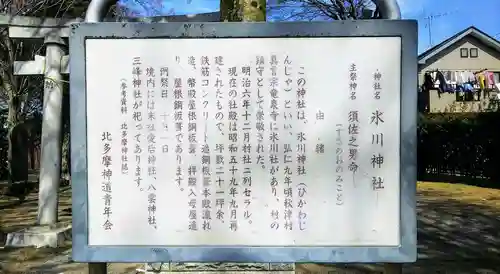 神社名 氷川神社
主祭神名 須佐之男命(すさのおのみこと)
由緒
この神社は、氷川神社(ひかわじ
んじゃ)といい、弘仁九年頃秋津村
真言宗龍泉寺に氷川社があり、村の
鎮守として崇敬された。
明治六年十二月村社ニ列セラル。
現在の社殿は昭和五十九年九月再
建されたもので、坪数二十一坪余、
鉄筋コンクリート造銅板葺本殿流れ
造、幣殿屋根銅板葺 拝殿入母屋造
り、屋根銅板葺であります。
例祭日
境内には末社
八雲神社、
三峰神社が祀ってあります。
(参考資料 北多摩神社誌)
北多摩神道青年会